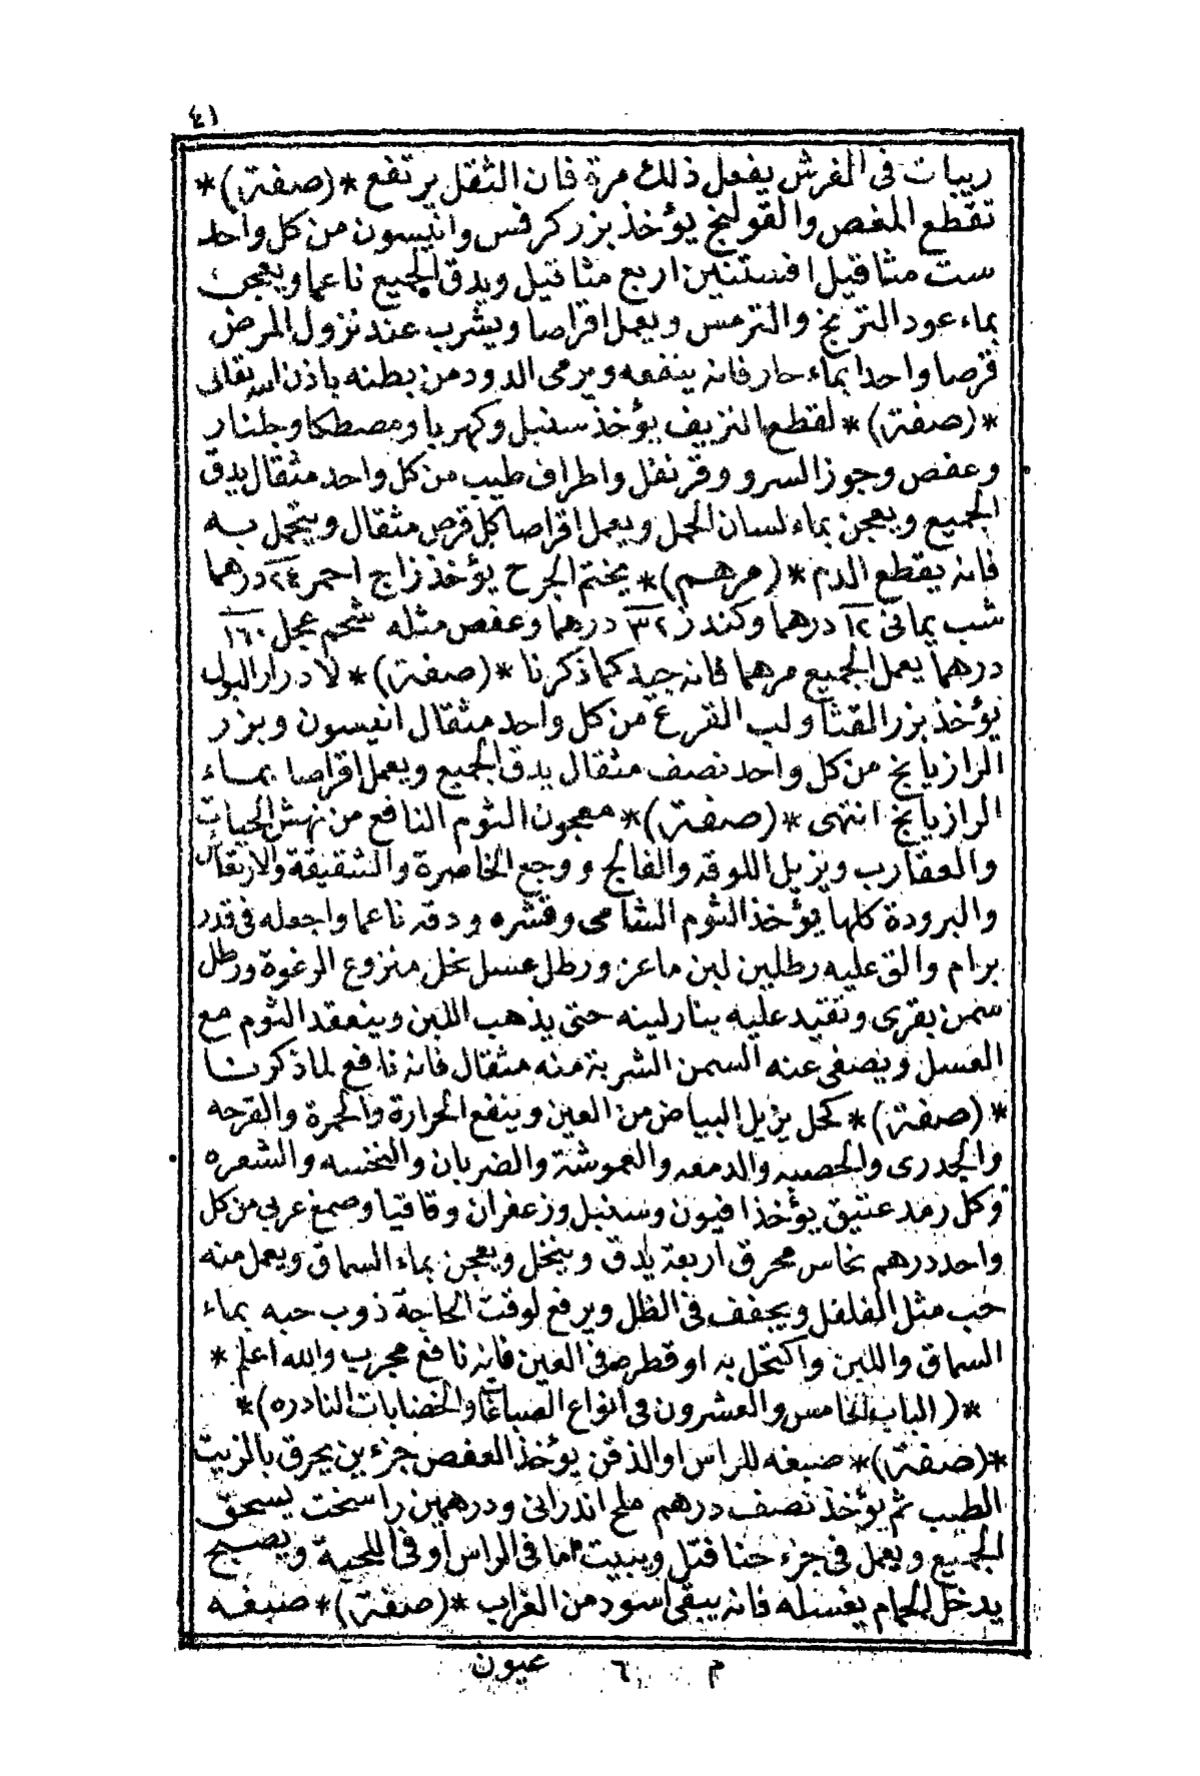 ٤١
ريبات فى الفرش يفعل ذلك مرة فان الثقل يرتفع *(صفة)*
تقطع المغص والقولنج يؤخذ بزر كرفس وانيسون من كل واحد
ست مثاقيل افستنين اربع مثاقيل ويدق الجميع ناعما ويعجن
بماء عود الترنج والترمس ويعمل اقراصا ويشرب عند نزول المرض
قرصا واحدا بماء حار فانه ينفعه ويرمى الدود من بطنه باذن الله تعالى
*(صفة)* لقطع النزيف يؤخذ سنبل وكهربا ومصطكا وجلنار
وعفص وجوز السرو وقرنفل واطراف طيب من كل واحد مثقال يدق
الجميع ويعجن بماء لسان الحمل ويعمل اقراصا كل قرص مثقال ويتحمل به
فانه يقطع الدم *(مرهم)* يختم الجرح يؤخذ زاج احمر ٢٤ درهما
شب يمانى ١٢ درهما وكندر ٣٢ درهما وعفص مثله شحم عجل ١٦٠
درهما يعمل الجميع مرهما فانه جيد كما ذكرنا *(صفة)* لادرار البول
يؤخذ بزر القثا ولب القرع من كل واحد مثقال انيسون وبزر
الرازيانج من كل واحد نصف مثقال يدق الجميع ويعمل اقراصا بماء
الرازيانج انتهى *(صفة)* معجون الثوم النافع من نهش الحيات
والعقارب ويزيل اللوقه والفالج ووجع الخاصرة والشقيقة والارتعاش
والبرودة كلها يؤخذ الثوم الشامى وقشره ودقه ناعما واجعله فى قدر
برام والق عليه رطلين لبن ماعز ورطل عسل نحل منزوع الرغوة ورطل
سمن بقرى وتقيد عليه بنار لينه حتى يذهب اللبن وينعقد الثوم مع
العسل ويصفى عنه السمن الشربة منه مثقال فانه نافع لما ذكرنا
*(صفة)* كحل يزيل البياض من العين وينفع الحرارة والحمرة والقرحه
والجدرى والحصبه والدمعه والغموشة والضربان والنخسه والشعره
وكل رمد عتيق يؤخذ افيون وسنبل وزعفران وقاقيا وصمغ عربى من كل
واحد درهم نحاس محرق اربعة يدق وينخل ويعجن بماء السماق ويعمل منه
حب مثل الفلفل ويجفف فى الظل ويرفع لوقت الحاجة ذوب حبه بماء
السماق واللبن واكتحل به او قطره فى العين فانه نافع مجرب والله اعلم *
*(الباب الخامس والعشرون فى انواع الصباغا والخضابات النادره)*
*(صفة)* صبغه للراس او الذقن يؤخذ العفص جزءين يحرق بالزيت
الطيب ثم يؤخذ نصف درهم ملح اندرانى ودرهمين راسخت يسحق
الجميع ويعمل فى جزء حنا فتل ويبيت اما فى الراس او فى اللحية ويصبح
يدخل الحمام يغسله فانه يبقى اسود من الغراب *(صفة)* صبغه
م ٦ عيون